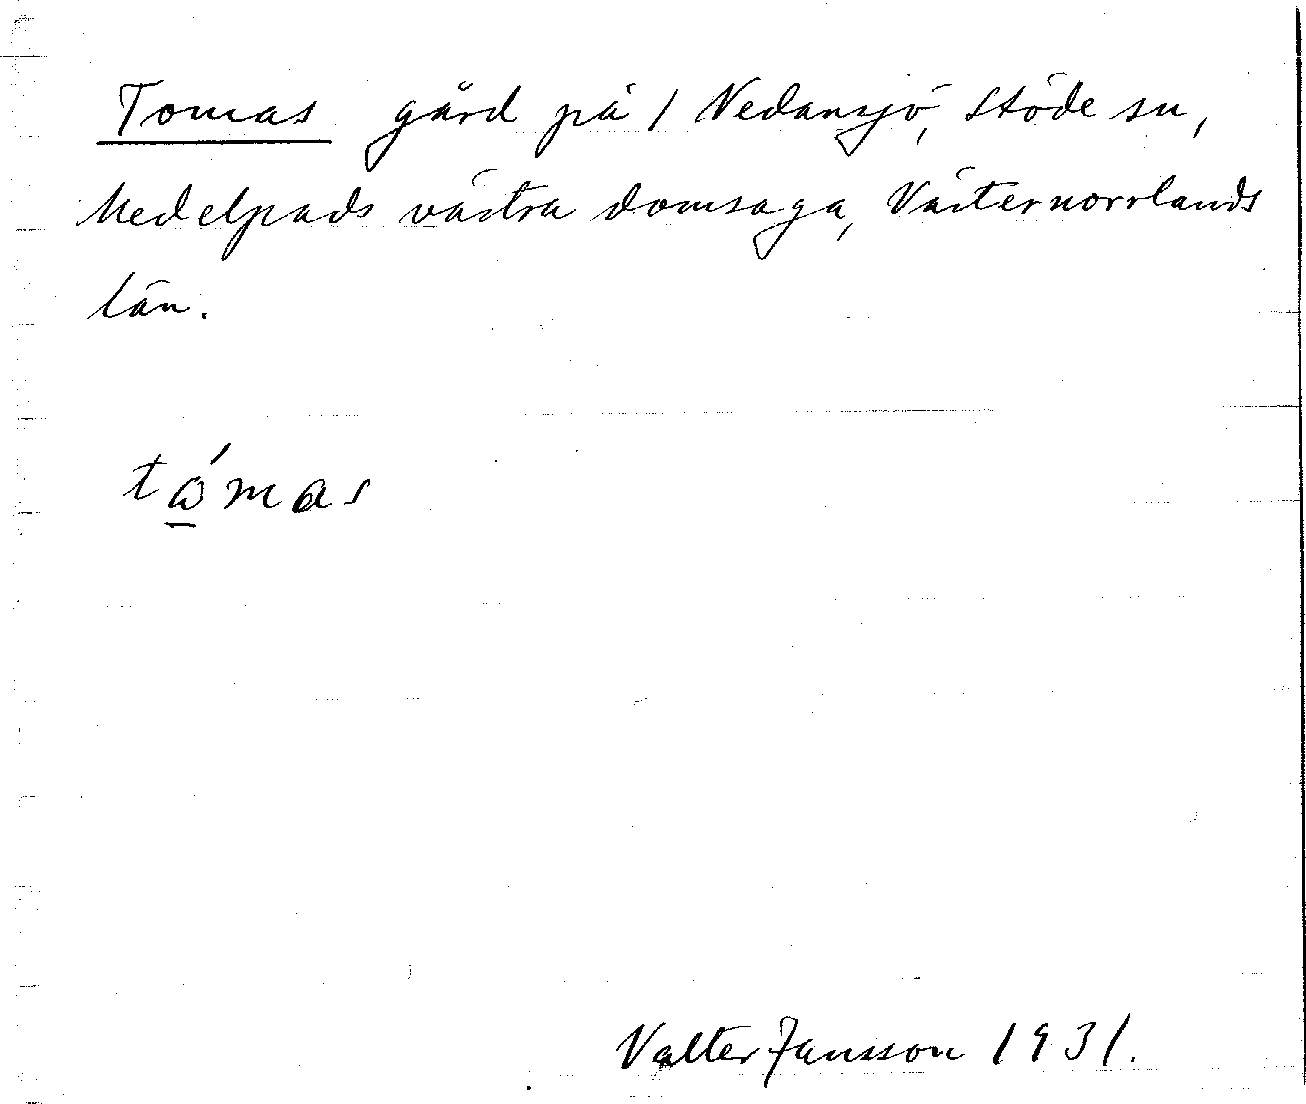 Tomas gård på 1 Nedansjö, Stöde sn,
Medelpads västra domsaga, Västernorrlands
län.
tǻmas
Valter Jansson 1931.